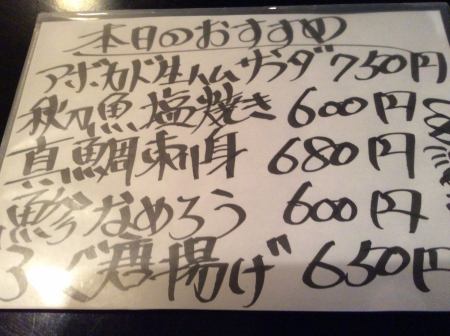 本日のおすすめ
アボカド生ハムサラダ 750円
秋刀魚塩焼き 600円
真鯛刺身 680円
鯵なめろう 600円
ふぐ唐揚げ 650円